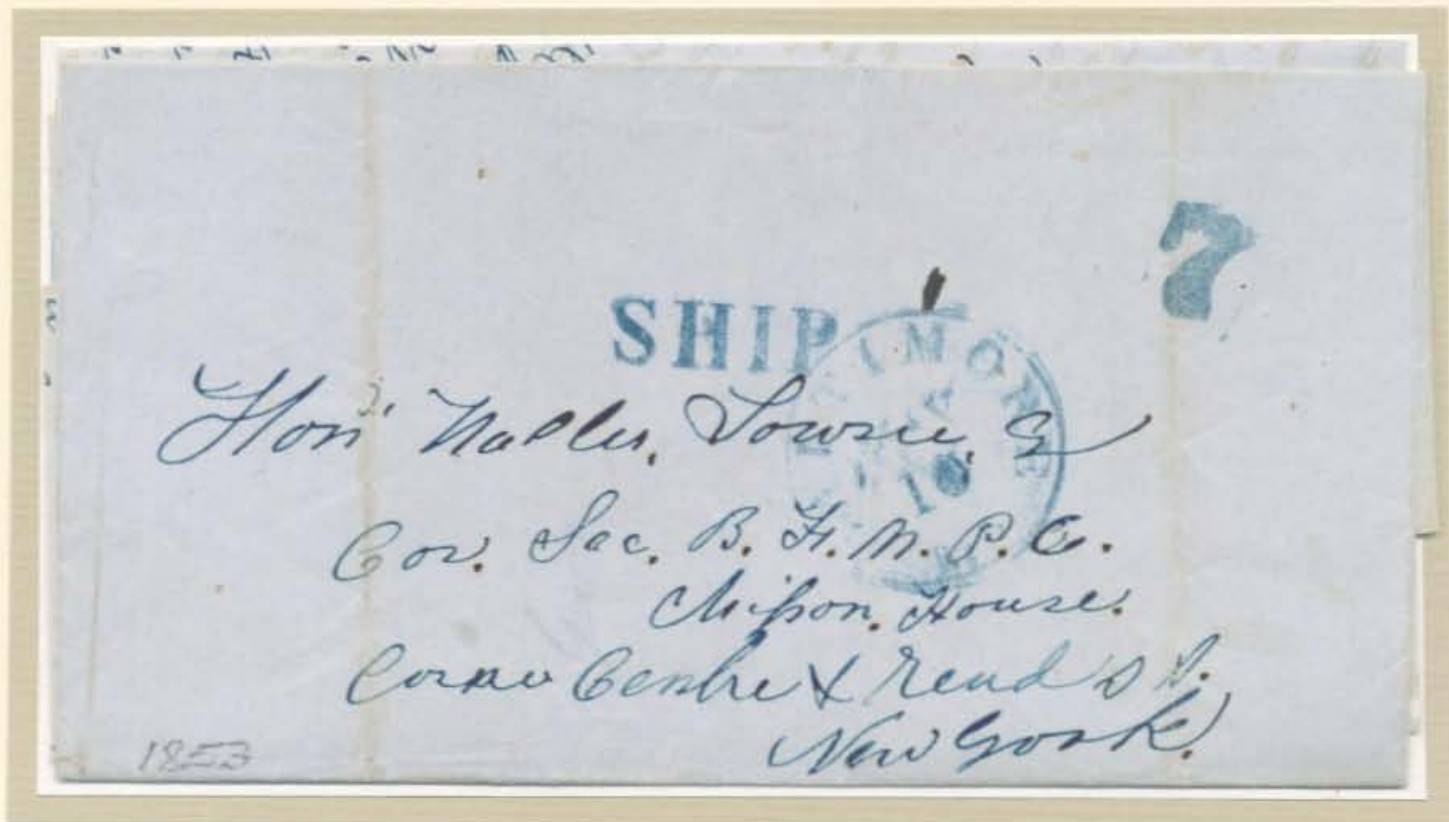 7
SHIP
BALTIMORE
10
Hon' Walter, Lowrie,
Cor. Sec. B. F. M. P. C.
Mission. House.
Corner Centre & Read St.
New York.
1853